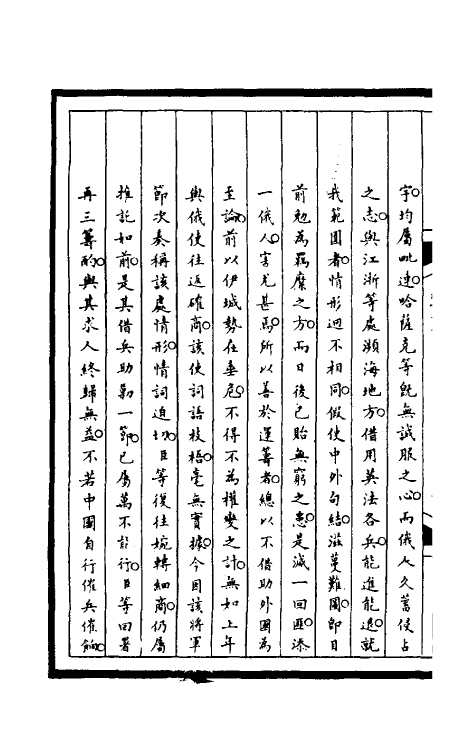 字均屬毗連哈薩克等既無誠服之心而俄人久蓄侵占
之志與江浙等處瀕海地方借用英法各兵能進能退就
我範圍者情形迥不相同假使中外勾結滋蔓難圖即目
前勉為羈縻之方而日後已貽無窮之患是減一回匪添
一俄人害尤甚焉所以善於運籌者總以不借助外國為
至論前以伊城勢在垂危不得不為權變之計無如上年
與俄使往返確商該使詞語枝梧毫無實據今因該將軍
節次奏稱該處情形情詞迫切臣等復往婉轉細商仍屬
推託如前是其借兵助勦一節已屬萬不能行臣等回署
再三籌酌與其求人終歸無益不若中國自行催兵催餉